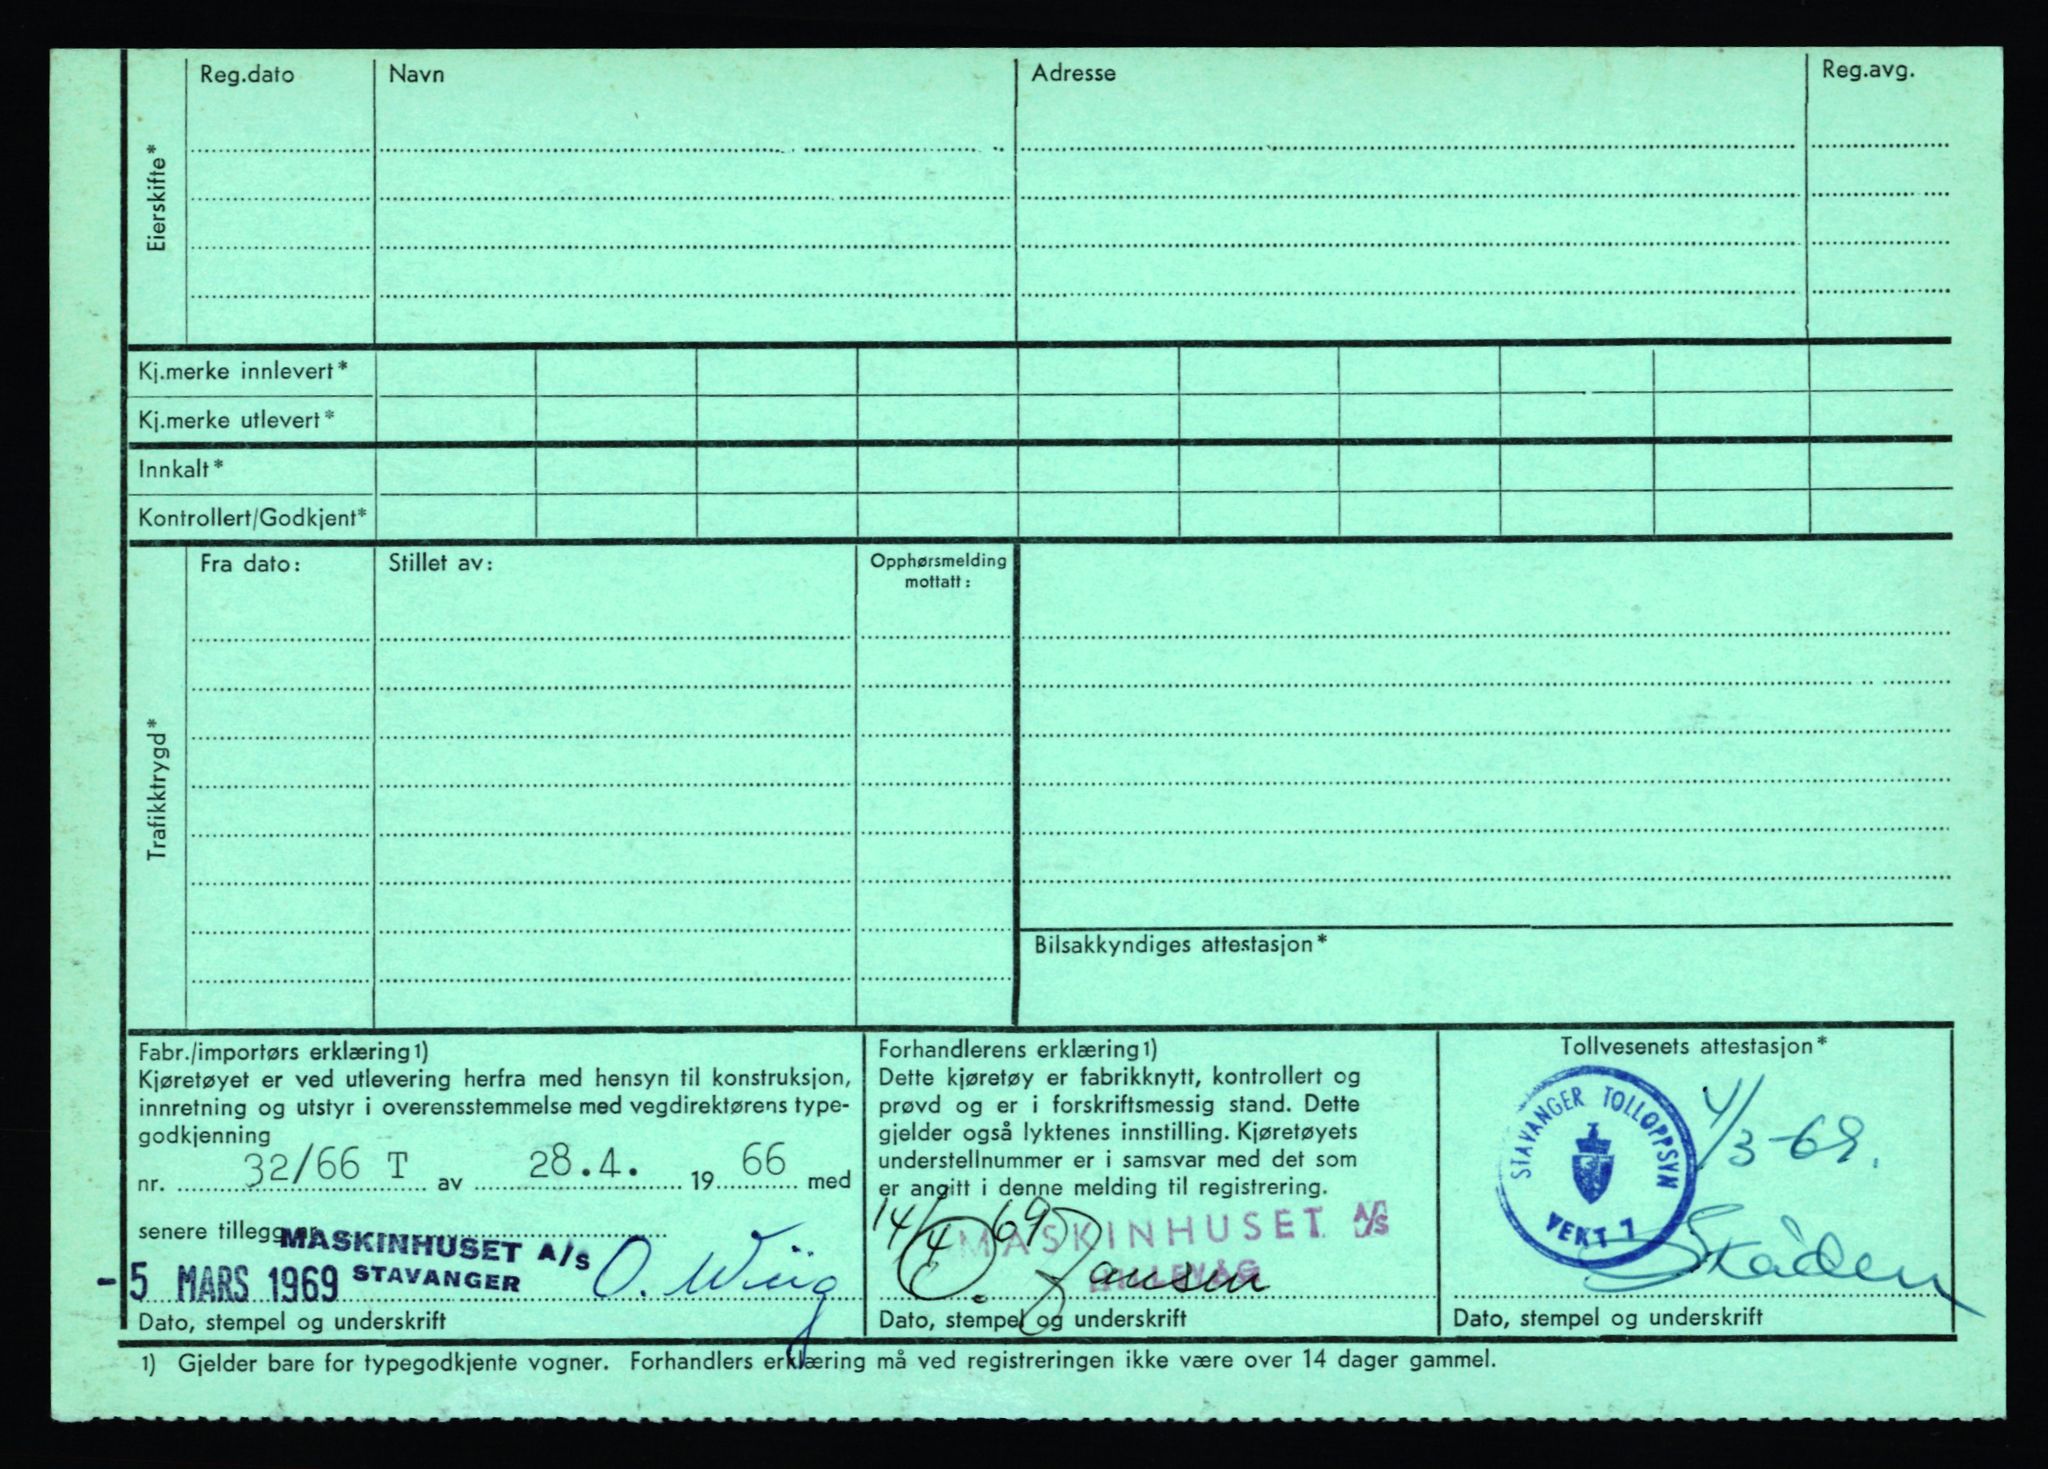 Reg.dato Navn Adresse Reg.avg.
Eierskifte*
Kj.merke innlevert*
Kj.merke utlevert*
Innkalt*
Kontrollert/Godkjent*
Fra dato: Stillet av: Opphørsmelding
mottatt:
Trafikktrygd*
Bilsakkyndiges attestasjon*
Fabr./importørs erklæring1)
Kjøretøyet er ved utlevering herfra med hensyn til konstruksjon,
innretning og utstyr i overensstemmelse med vegdirektørens type-
godkjenning
nr. 32/66 T av 28.4. 19 66 med
senere tillegg nr.
MASKINHUSET A/S
STAVANGER
-5 MARS 1969
O. Wiig
Dato, stempel og underskrift
Forhandlerens erklæring1)
Dette kjøretøy er fabrikknytt, kontrollert og
prøvd og er i forskriftsmessig stand. Dette
gjelder også lyktenes innstilling. Kjøretøyets
understellnummer er i samsvar med det som
er angitt i denne melding til registrering.
14/4 69
MASKINHUSET A/S
HILLEVÅG
O. Jansen
Dato, stempel og underskrift
Tollvesenets attestasjon*
STAVANGER TOLLOPPSYN
VEKT 1
4/3-69.
Skåden
Dato, stempel og underskrift
1) Gjelder bare for typegodkjente vogner. Forhandlers erklæring må ved registreringen ikke være over 14 dager gammel.